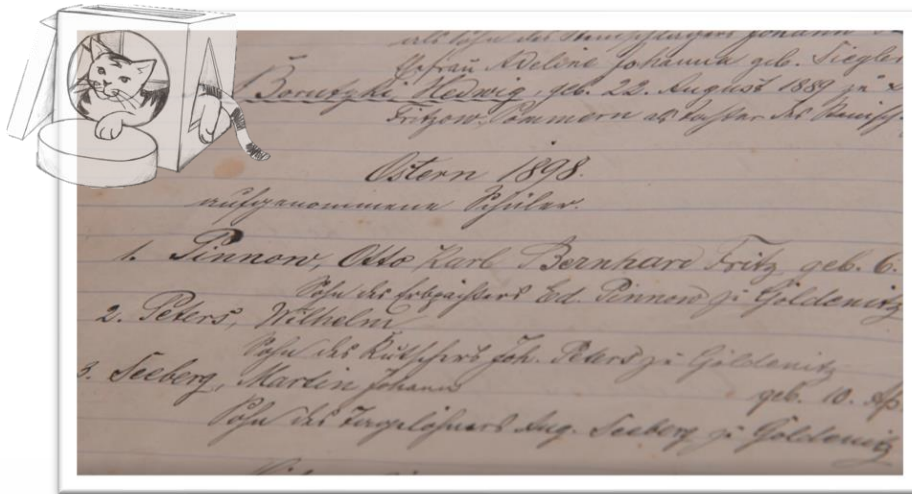 als Sohn des Johann
Ehefrau Adeline Johanna geb. Siegler
Borutzki Hedwig, geb. 22. August 1889 zu
Fritzow Pommern als Tochter des
Ostern 1898.
aufgenommene Schüler.
1. Pinnow, Otto Karl Bernhard Fritz, geb. 6.
Sohn des Erbpächters Ed. Pinnow zu Göldenitz
2. Peters, Wilhelm
Sohn des Kutschers Joh. Peters zu Göldenitz
3. Seeberg, Martin Johann geb. 10. Ap
Sohn des Tagelöhners Aug. Seeberg zu Göldenitz